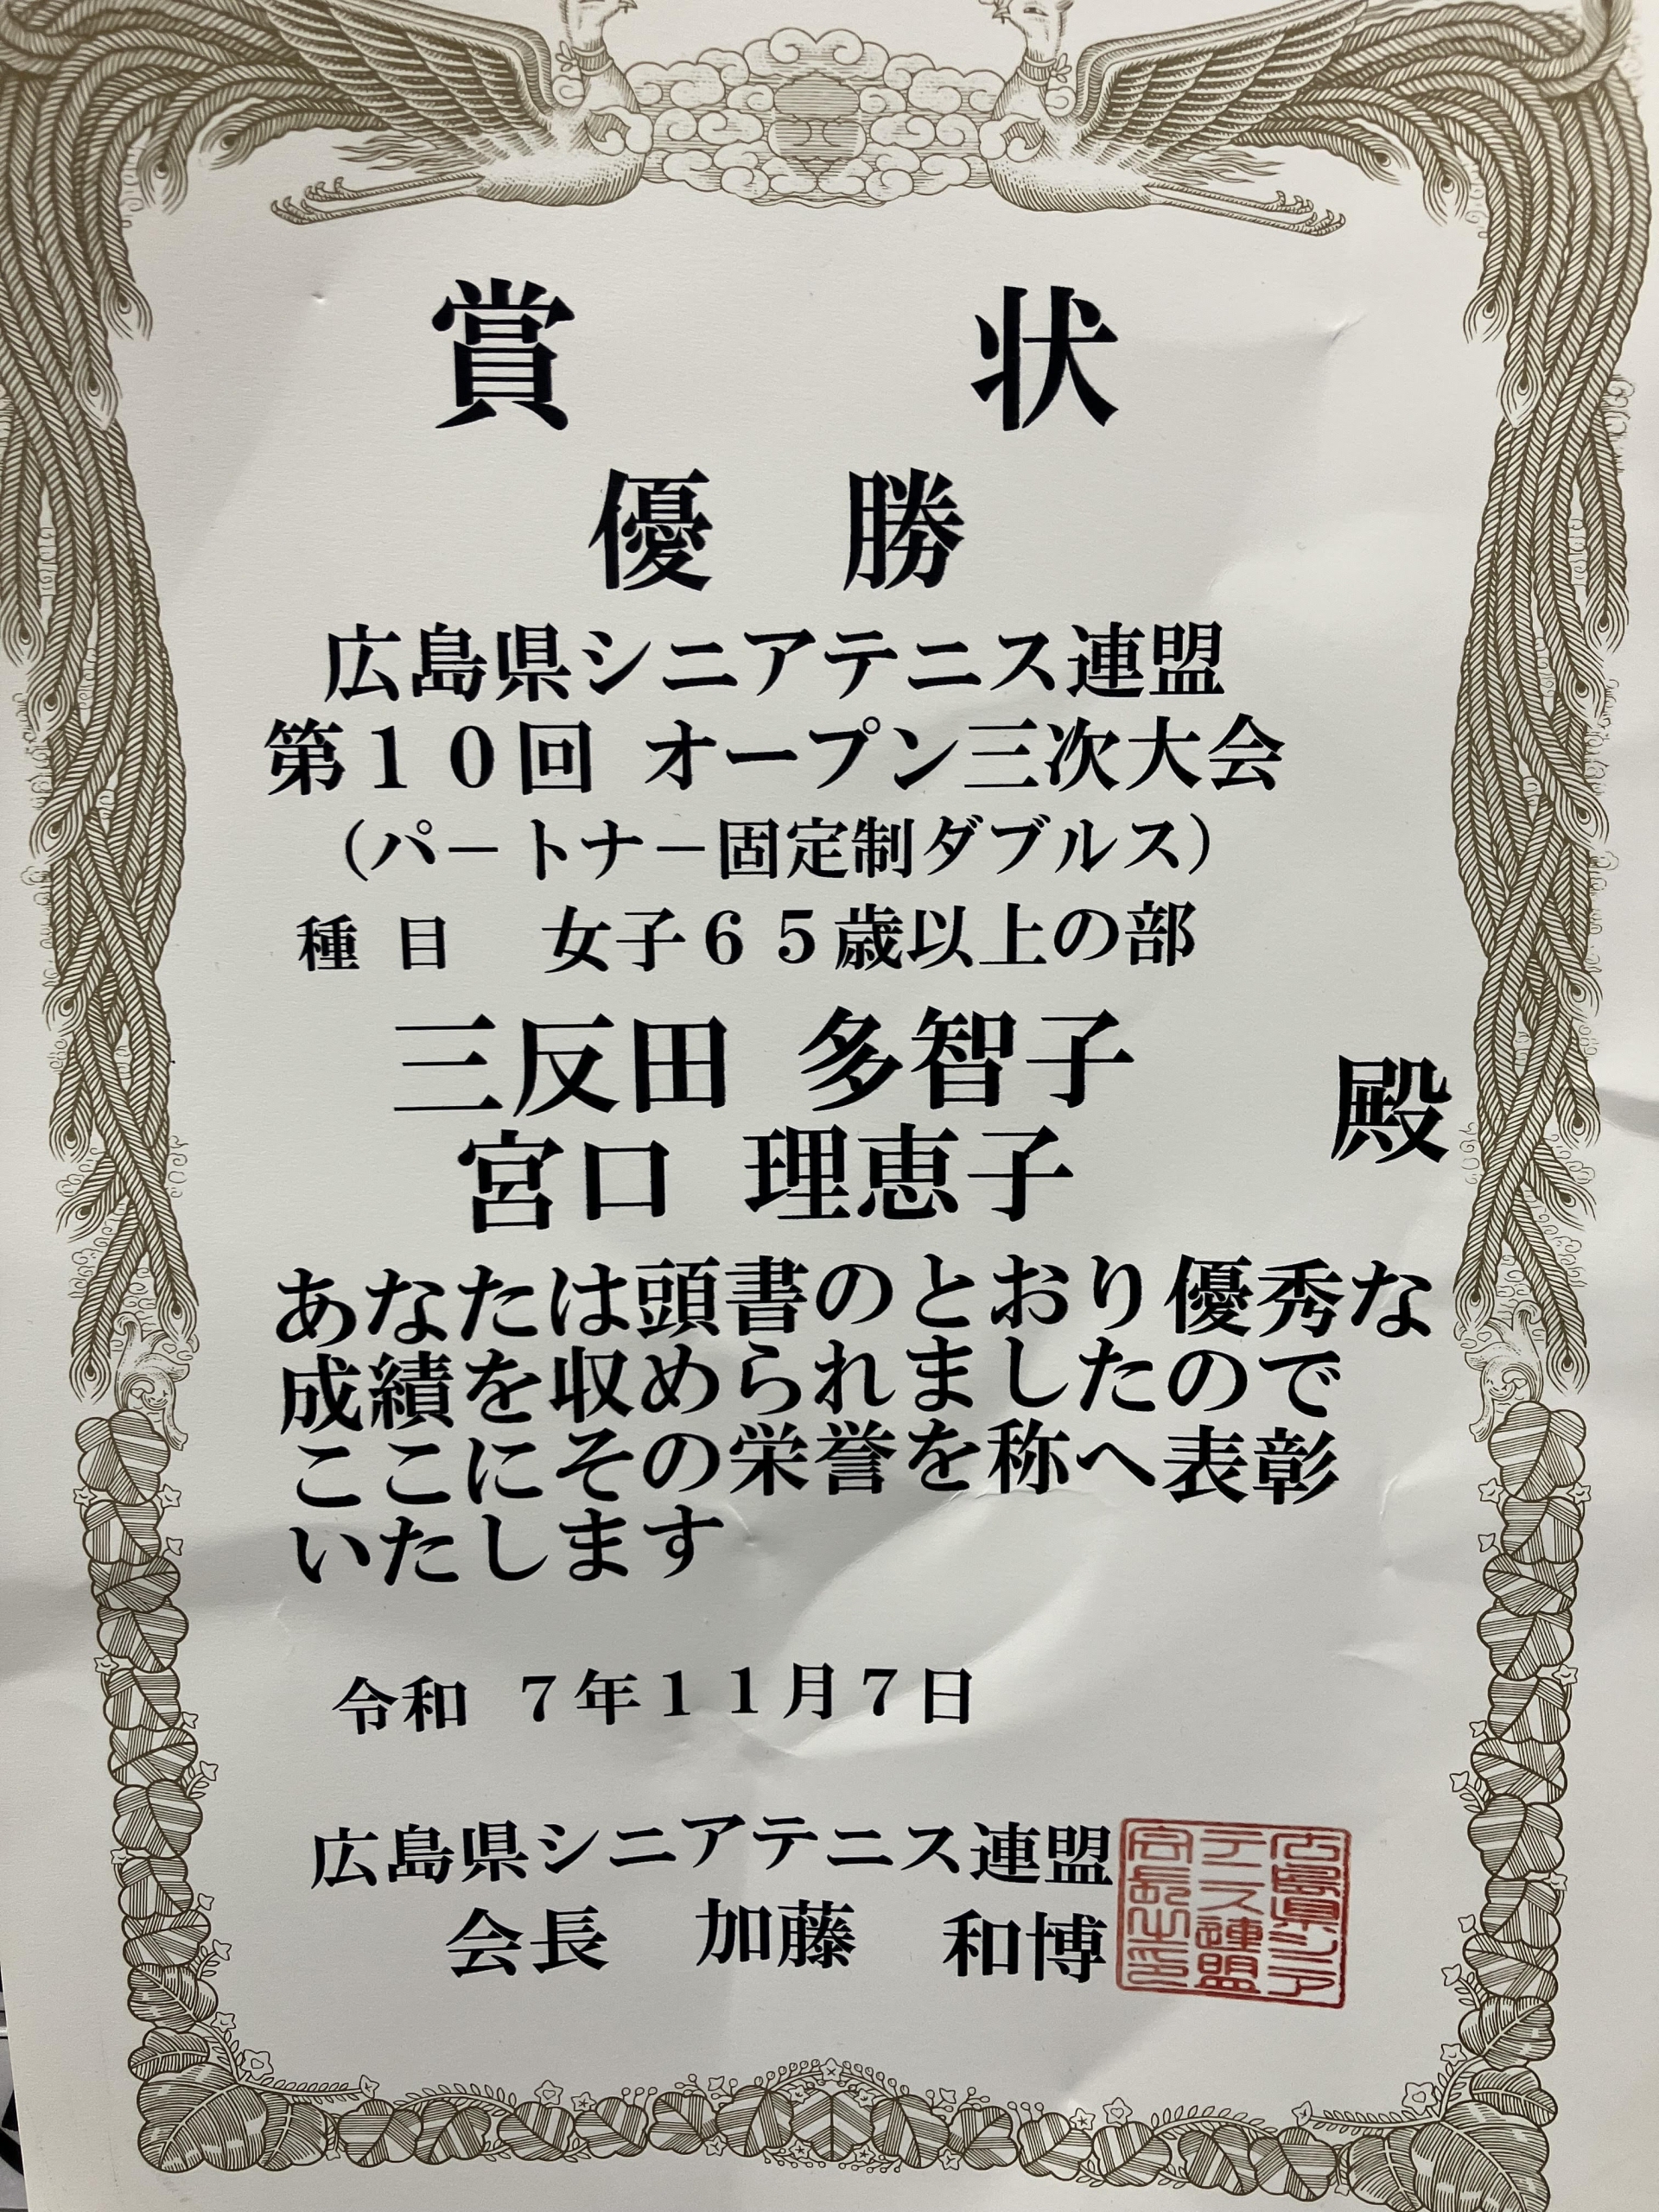 賞 状
優 勝
広島県シニアテニス連盟
第１０回 オープン三次大会
（パートナー固定制ダブルス）
種 目 女子６５歳以上の部
三反田 多智子
宮口 理恵子
殿
あなたは頭書のとおり優秀な
成績を収められましたので
ここにその栄誉を称へ表彰
いたします
令和 ７年１１月７日
広島県シニアテニス連盟
会長 加藤 和博
広島県シニア
テニス連盟
会長之印